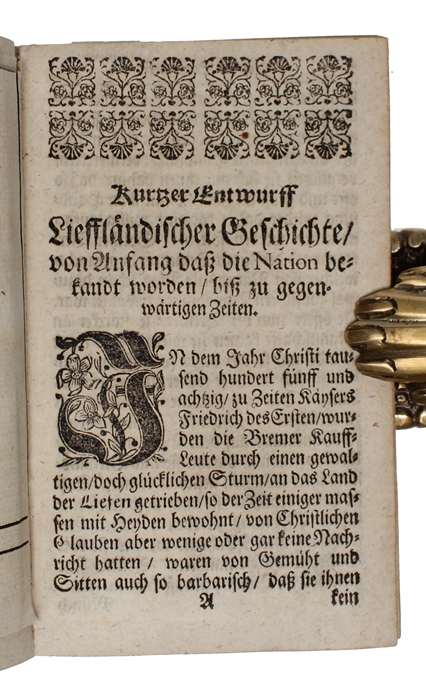 Kurtzer Entwurff
Liefländischer Geschichte/
von Anfang daß die Nation be-
kandt worden / biß zu gegen-
wärtigen Zeiten.
IN dem Jahr Christi tau-
send hundert fünff und
achtzig/ zu Zeiten Käysers
Friedrich des Ersten/ wur-
den die Bremer Kauff-
Leute durch einen gewal-
tigen/ doch glücklichen Sturm/ an das Land
der Liefen getrieben/ so der Zeit einiger mas-
sen mit Heyden bewohnt/ von Christlichen
Glauben aber wenige oder gar keine Nach-
richt hatten / waren von Gemüht und
Sitten auch so barbarisch/ daß sie ihnen
A kein